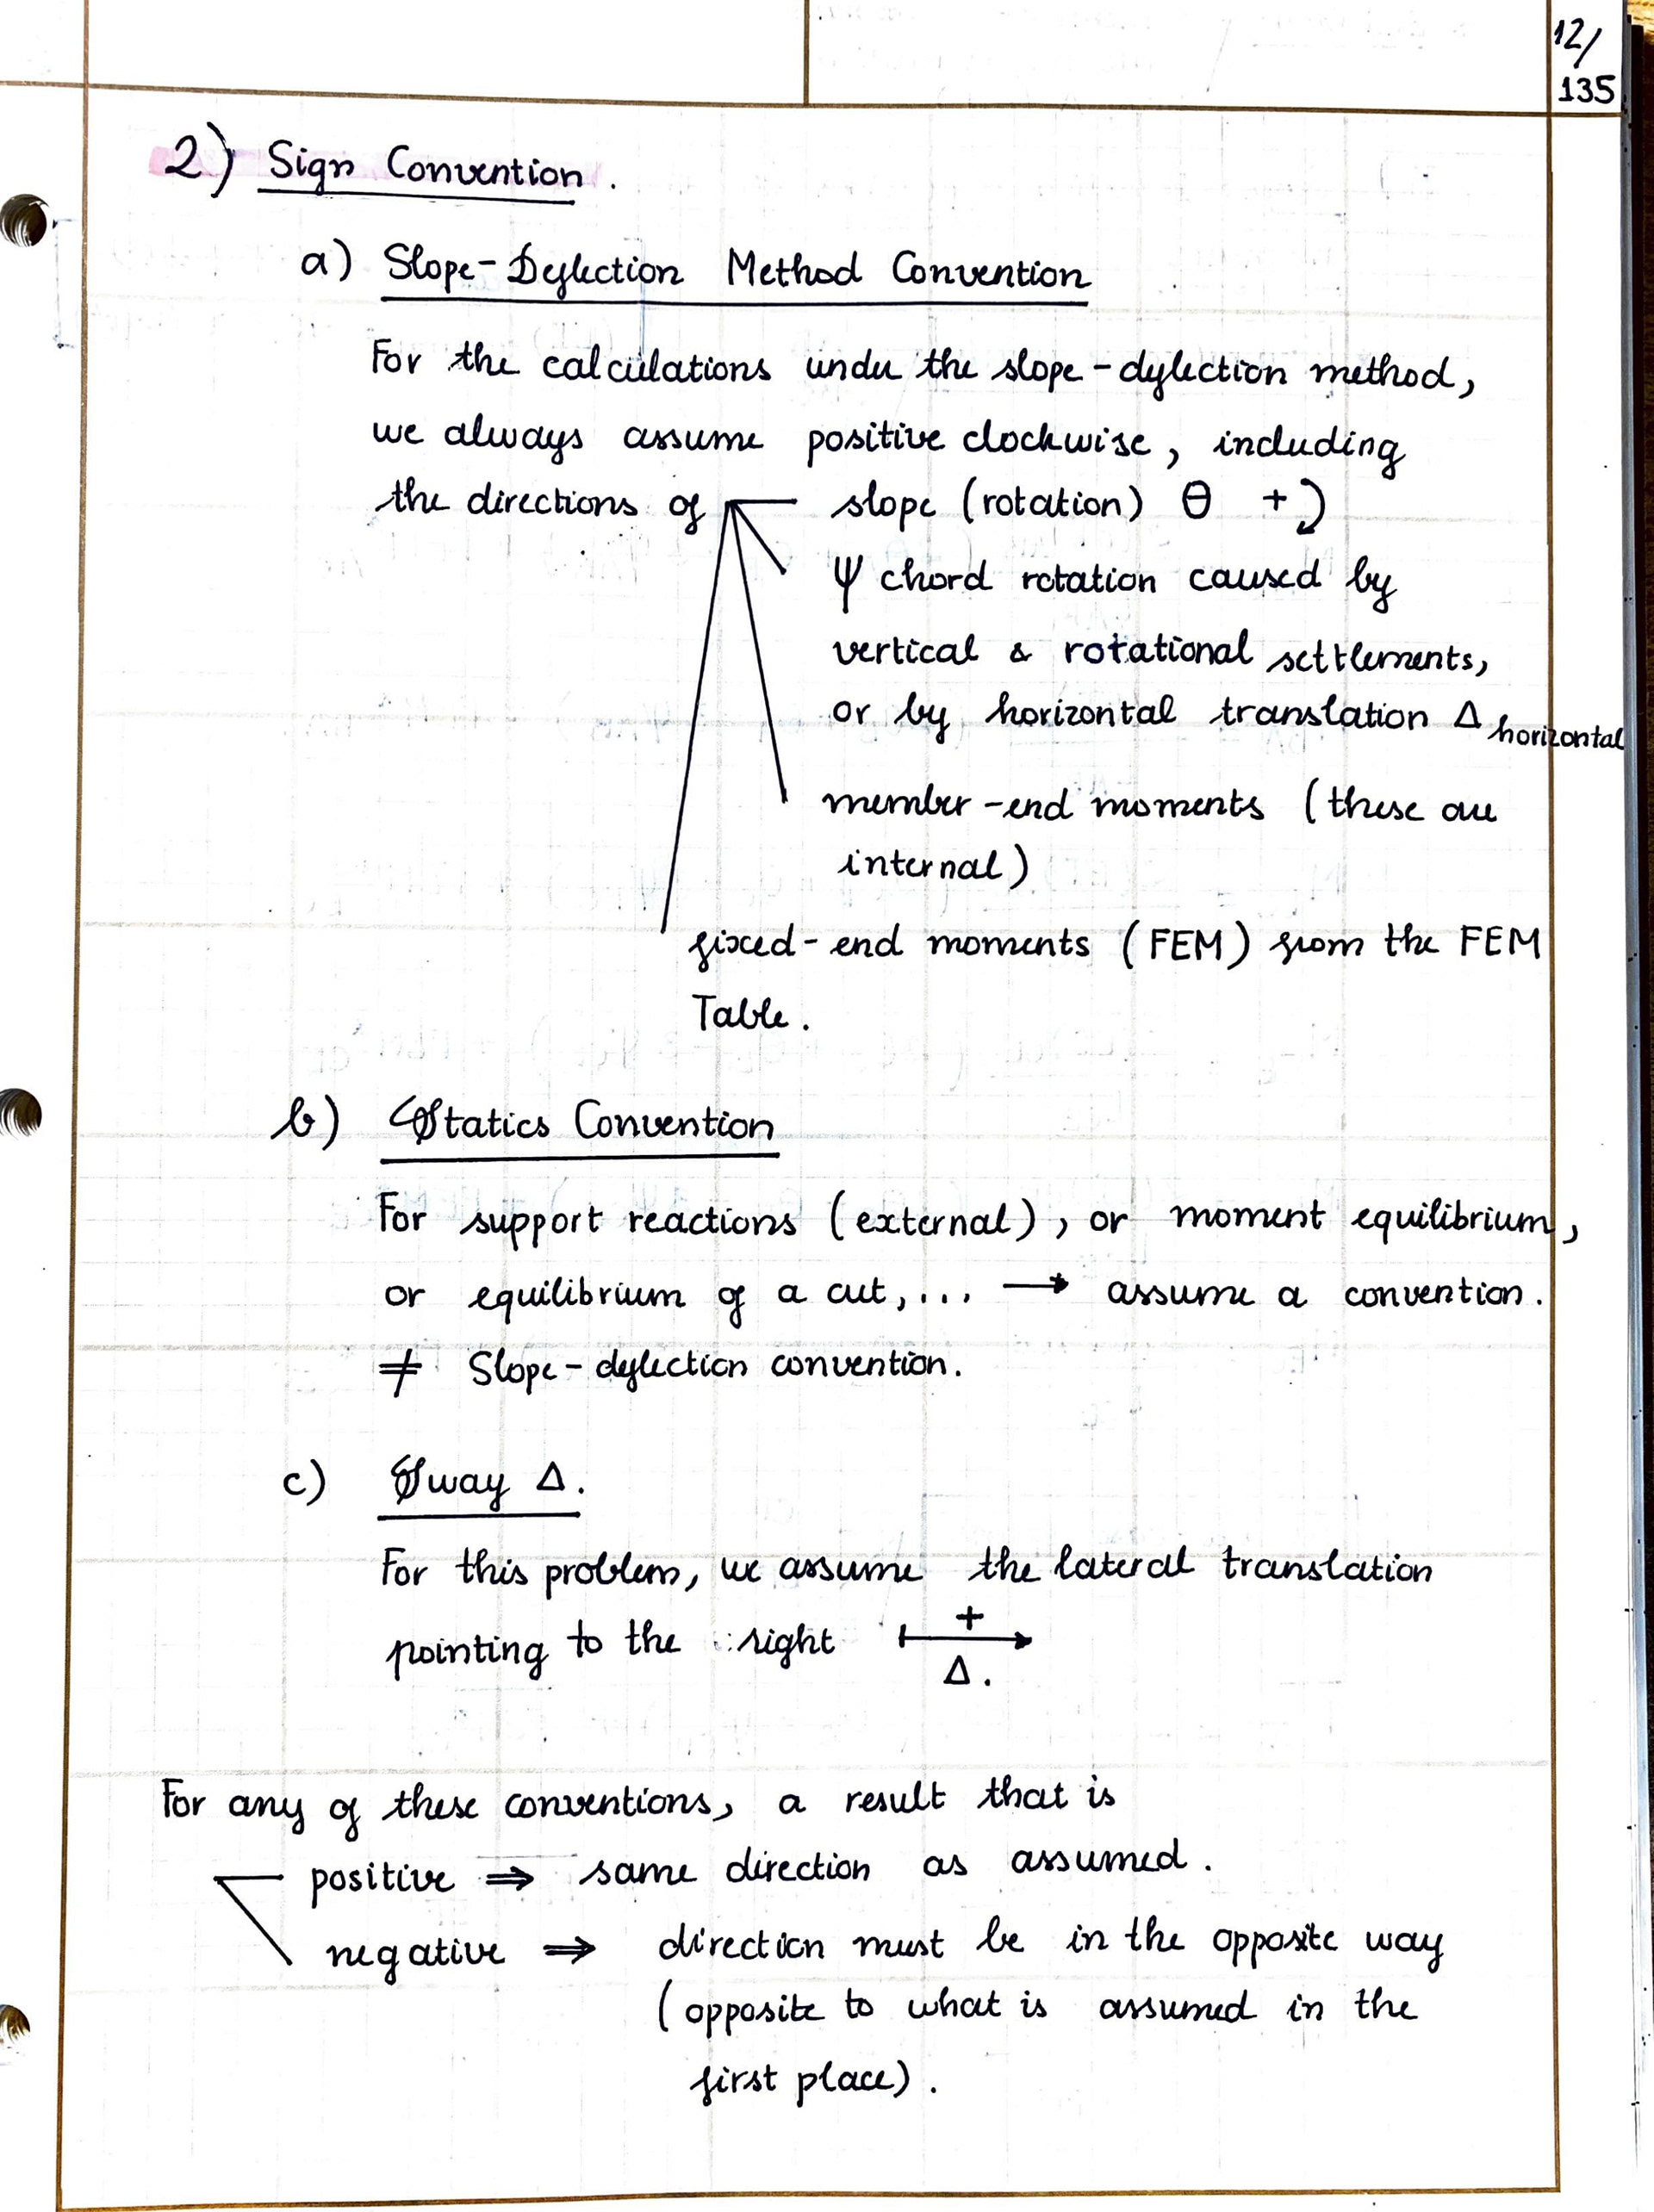 12/
135
2) Sign Convention.
a) Slope-Deflection Method Convention
For the calculations under the slope-deflection method,
we always assume positive clockwise, including
the directions of slope (rotation) θ +⤵
ψ chord rotation caused by
vertical & rotational settlements,
or by horizontal translation Δ horizontal
member-end moments (these are
internal)
fixed-end moments (FEM) from the FEM
Table.
b) Statics Convention
For support reactions (external), or moment equilibrium,
or equilibrium of a cut,... → assume a convention.
≠ Slope-deflection convention.
c) Sway Δ.
For this problem, we assume the lateral translation
pointing to the right +
Δ.
For any of these conventions, a result that is
positive ⇒ same direction as assumed.
negative ⇒ direction must be in the opposite way
(opposite to what is assumed in the
first place).